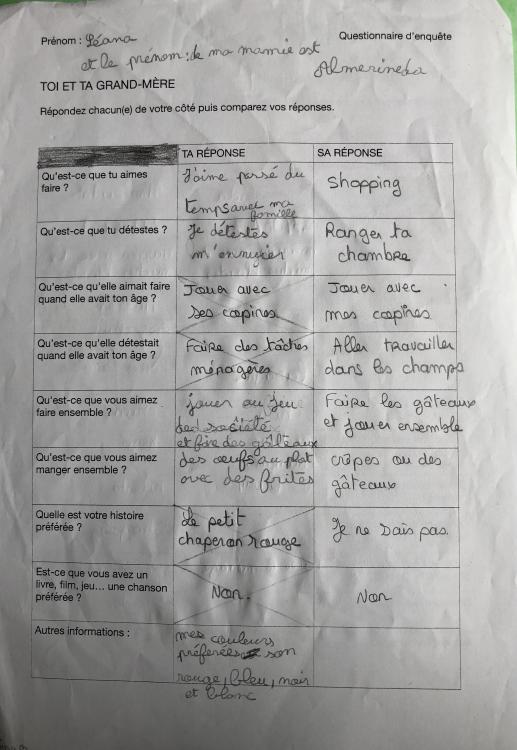 Prénom : Léana
Questionnaire d'enquête
et le prénom: de ma mamie est
Almerineda
TOI ET TA GRAND-MÈRE
Répondez chacun(e) de votre côté puis comparez vos réponses.
TA RÉPONSE
SA RÉPONSE
Qu'est-ce que tu aimes
faire ?
J'aime passé du
temps avec ma
famille
Shopping
Qu'est-ce que tu détestes ?
Je détestes
m'ennuyier
Ranger ta
chambre
Qu'est-ce qu'elle aimait faire
quand elle avait ton âge ?
Jouer avec
ses copines
Jouer avec
mes copines
Qu'est-ce qu'elle détestait
quand elle avait ton âge ?
Faire des tâches
ménagères
Aller travailler
dans les champs
Qu'est-ce que vous aimez
faire ensemble ?
jouer au jeu
de société
et faire des gâteaux
Faire les gâteaux
et jouer ensemble
Qu'est-ce que vous aimez
manger ensemble ?
des œufs au plat
avec des frites
crêpes ou des
gâteaux
Quelle est votre histoire
préférée ?
Le petit
chaperon rouge
Je ne sais pas.
Est-ce que vous avez un
livre, film, jeu... une chanson
préférée ?
Non.
Non
Autres informations :
mes couleurs
préférées son
rouge, bleu, noir
et blanc